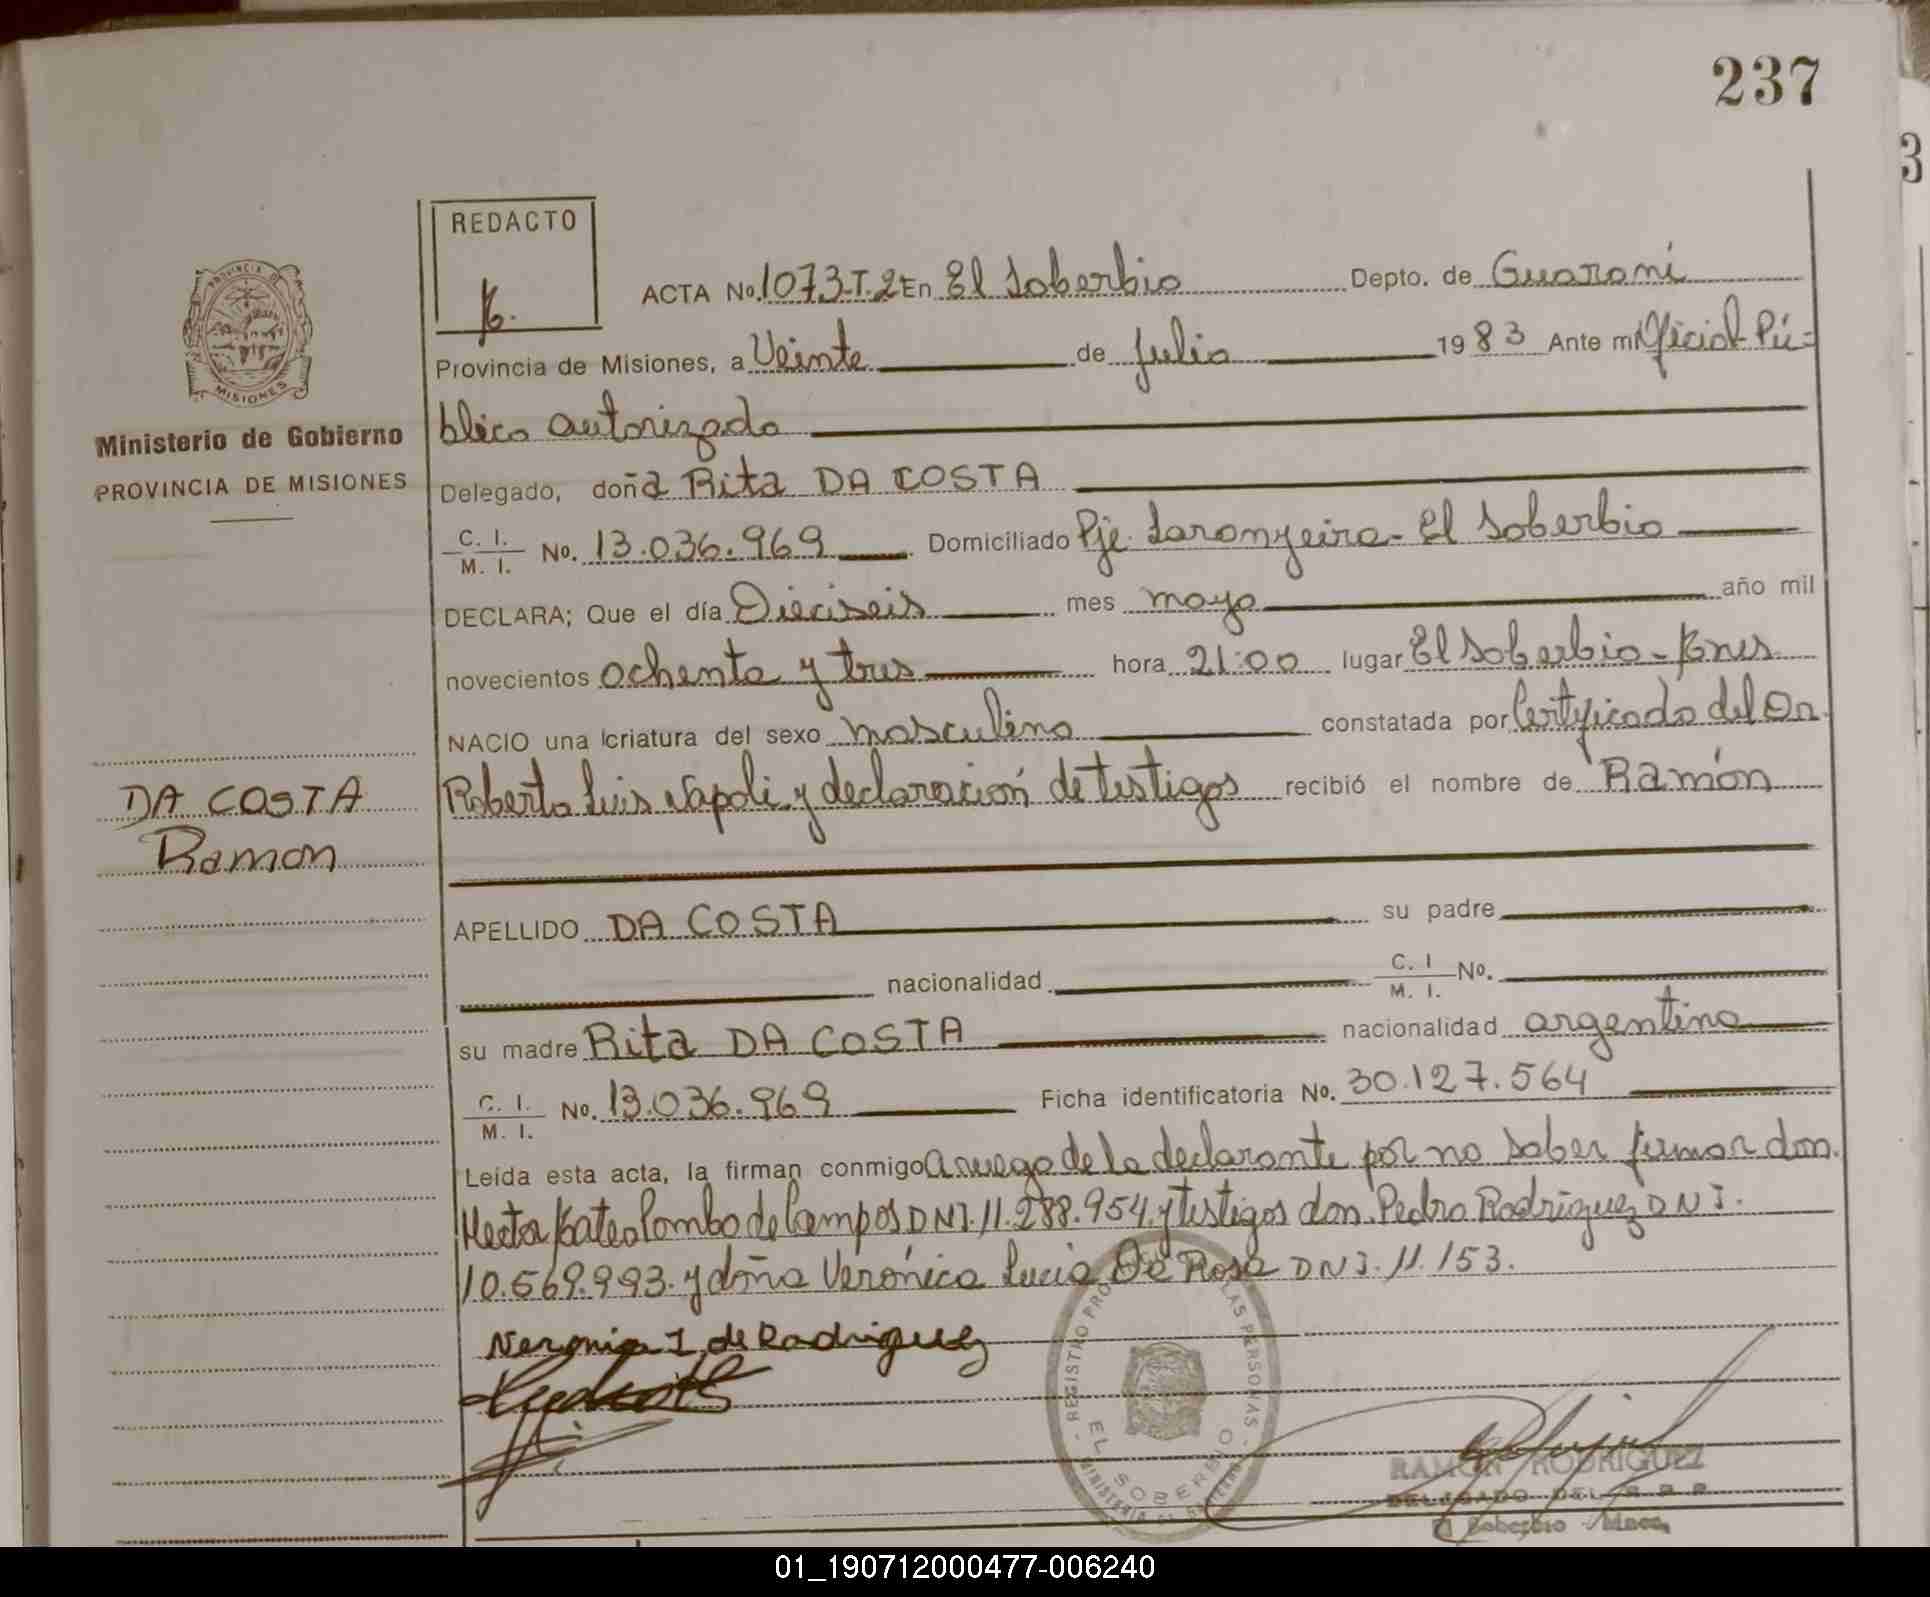 237
3
REDACTO
PROVINCIA DE
MISIONES
Ministerio de Gobierno
PROVINCIA DE MISIONES
ACTA No. 1073-T.2 En El Soberbio Depto. de Guaraní
Provincia de Misiones, a Veinte de Julio 1983 Ante mí Oficial Pú=
blico autorizado
Delegado, doña Rita DA COSTA
C. I. / M. I. No. 13.036.969 Domiciliado Pje. Laranyeira - El Soberbio
DECLARA; Que el día Dieciseis mes mayo año mil
novecientos ochenta y tres hora 21:00 lugar El Soberbio -
NACIO una criatura del sexo masculino constatada por Certificado del Dr.
Roberto Luis Napoli y declaración de testigos recibió el nombre de Ramón
DA COSTA
Ramon
APELLIDO DA COSTA su padre
nacionalidad C. I / M. I. No.
su madre Rita DA COSTA nacionalidad argentina
C. I. / M. I. No. 13.036.969 Ficha identificatoria No. 30.127.564
Leída esta acta, la firman conmigo a ruego de la declarante por no saber firmar don
de Campos DNI. 11.288.954 y testigos don Pedro Rodriguez DNI.
10.569.993. y doña Verónica Lucia De Rosa DNI. 11.153.
de Rodriguez
REGISTRO PRO LAS PERSONAS
EL SOBERBIO
RAMON RODRIGUEZ
DELEGADO DEL R P P
El Soberbio - Mnes.
01_190712000477-006240